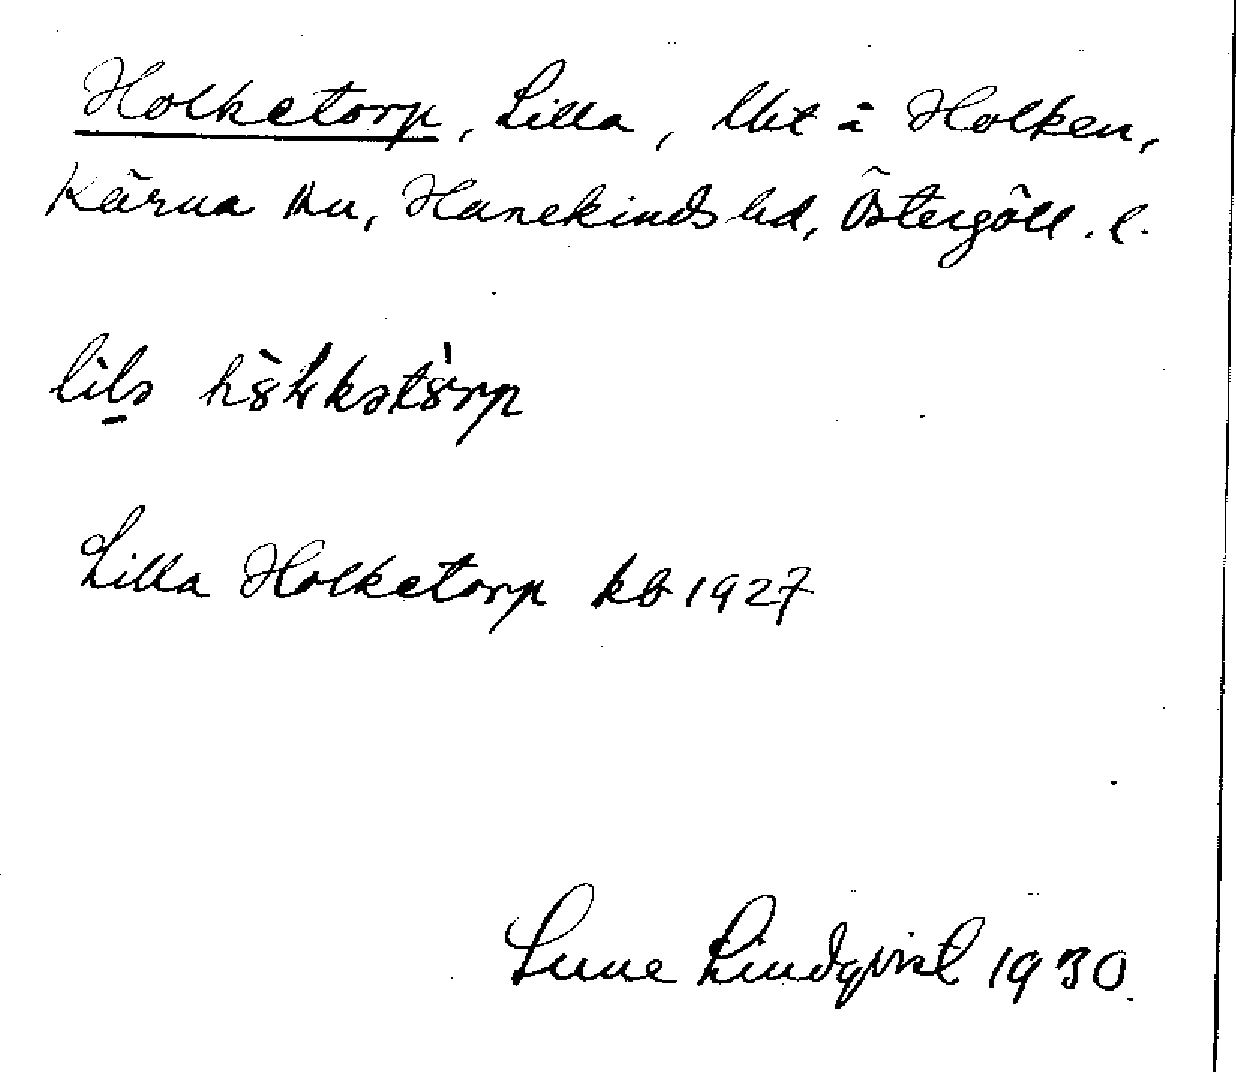 Holketorp, Lilla, lht å Holken,
Kärna sn, Hanekinds hd, Östergötl. l.
Lilla Holketorp kb 1927
Sune Lindqvist 1930